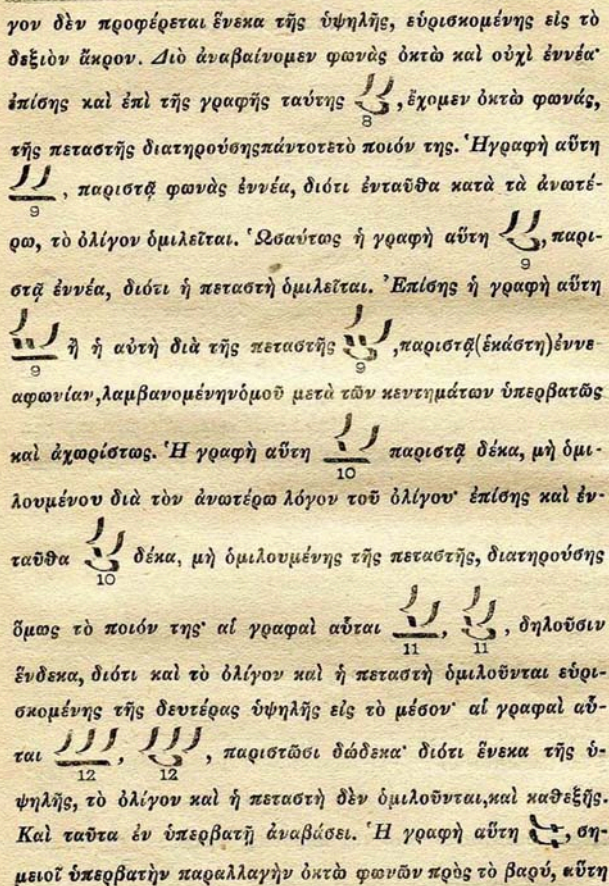 γον δὲν προφέρεται ἕνεκα τῆς ὑψηλῆς, εὑρισκομένης εἰς τὸ
δεξιὸν ἄκρον. Διὸ ἀναβαίνομεν φωνὰς ὀκτὼ καὶ οὐχὶ ἐννέα·
ἐπίσης καὶ ἐπὶ τῆς γραφῆς ταύτης , ἔχομεν ὀκτὼ φωνάς,
8
τῆς πεταστῆς διατηρούσης πάντοτε τὸ ποιόν της. Ἡ γραφὴ αὕτη
, παριστᾷ φωνὰς ἐννέα, διότι ἐνταῦθα κατὰ τὰ ἀνωτέ-
9
ρω, τὸ ὀλίγον ὁμιλεῖται. Ὡσαύτως ἡ γραφὴ αὕτη , παρι-
9
στᾷ ἐννέα, διότι ἡ πεταστὴ ὁμιλεῖται. Ἐπίσης ἡ γραφὴ αὕτη
ἢ ἡ αὐτὴ διὰ τῆς πεταστῆς , παριστᾷ (ἑκάστη) ἐννε-
9 9
αφωνίαν, λαμβανομένην ὁμοῦ μετὰ τῶν κεντημάτων ὑπερβατῶς
καὶ ἀχωρίστως. Ἡ γραφὴ αὕτη παριστᾷ δέκα, μὴ ὁμι-
10
λουμένου διὰ τὸν ἀνωτέρω λόγον τοῦ ὀλίγου· ἐπίσης καὶ ἐν-
ταῦθα δέκα, μὴ ὁμιλουμένης τῆς πεταστῆς, διατηρούσης
10
ὅμως τὸ ποιόν της· αἱ γραφαὶ αὗται , , δηλοῦσιν
11 11
ἕνδεκα, διότι καὶ τὸ ὀλίγον καὶ ἡ πεταστὴ ὁμιλοῦνται εὑρι-
σκομένης τῆς δευτέρας ὑψηλῆς εἰς τὸ μέσον· αἱ γραφαὶ αὗ-
ται , , παριστῶσι δώδεκα· διότι ἕνεκα τῆς ὑ-
12 12
ψηλῆς, τὸ ὀλίγον καὶ ἡ πεταστὴ δὲν ὁμιλοῦνται, καὶ καθεξῆς.
Καὶ ταῦτα ἐν ὑπερβατῇ ἀναβάσει. Ἡ γραφὴ αὕτη , ση-
μειοῖ ὑπερβατὴν παραλλαγὴν ὀκτὼ φωνῶν πρὸς τὸ βαρύ, αὕτη